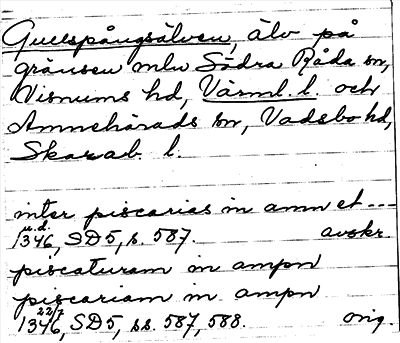 Gullspångsälven, älv på
gränsen mln Södra Råda sn,
Visnums hd, Värml. l. och
Amnehärads sn, Vadsbo hd,
Skarab. l.
inter piscarias in amn et ---
u.d.
1346, SD 5, s. 587. avskr.
piscaturam in ampn
piscariam in ampn
22/7
1346, SD 5, ss. 587, 588. orig.